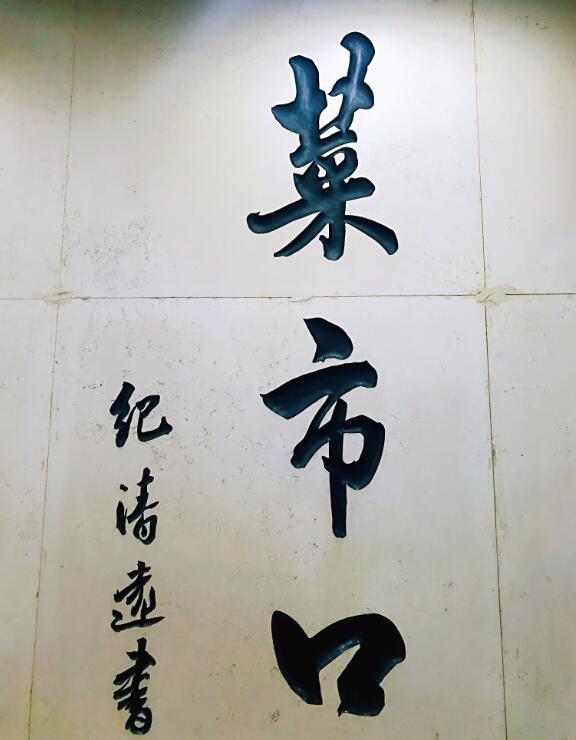 菜市口
纪清远書